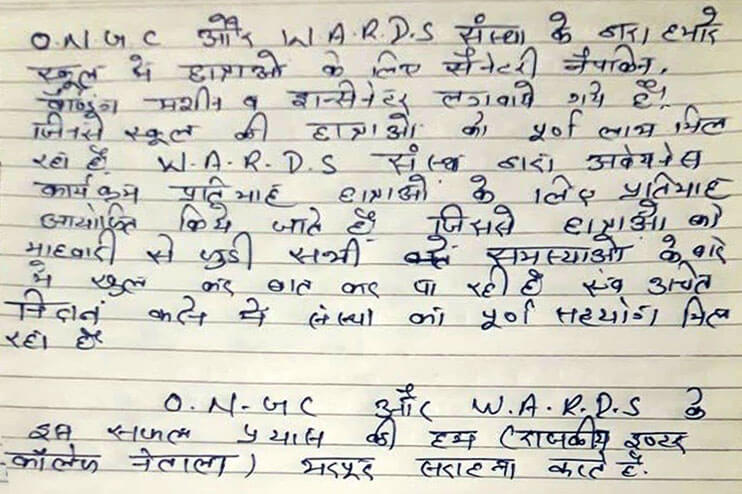 O.N.G.C और W.A.R.D.S संस्था के द्वारा हमारे
स्कूल मे छात्राओ के लिए सैनेटरी नैपकिन,
मशीन व इन्सीनेटर लगवाये गये है।
जिनसे स्कूल की छात्राओ को पूर्ण लाभ मिल
रहा है। W.A.R.D.S संस्थ द्वारा अवेयनेस
कार्यक्रम प्रतिमाह छात्राओं के लिए प्रतिमाह
आयोजित किये जाते है जिससे छात्राओं को
माहवारी से जुडी सभी समस्याओं के बारे
मे खुल कर बात कर पा रही है एंव उचित
निदान करने मे संस्था का पूर्ण सहयोग मिल
रहा है
O.N.G.C और W.A.R.D.S के
इस सफल प्रयास की हम (राजकीय इण्टर
कॉलेज नेताला) भरपूर सराहना करते है.